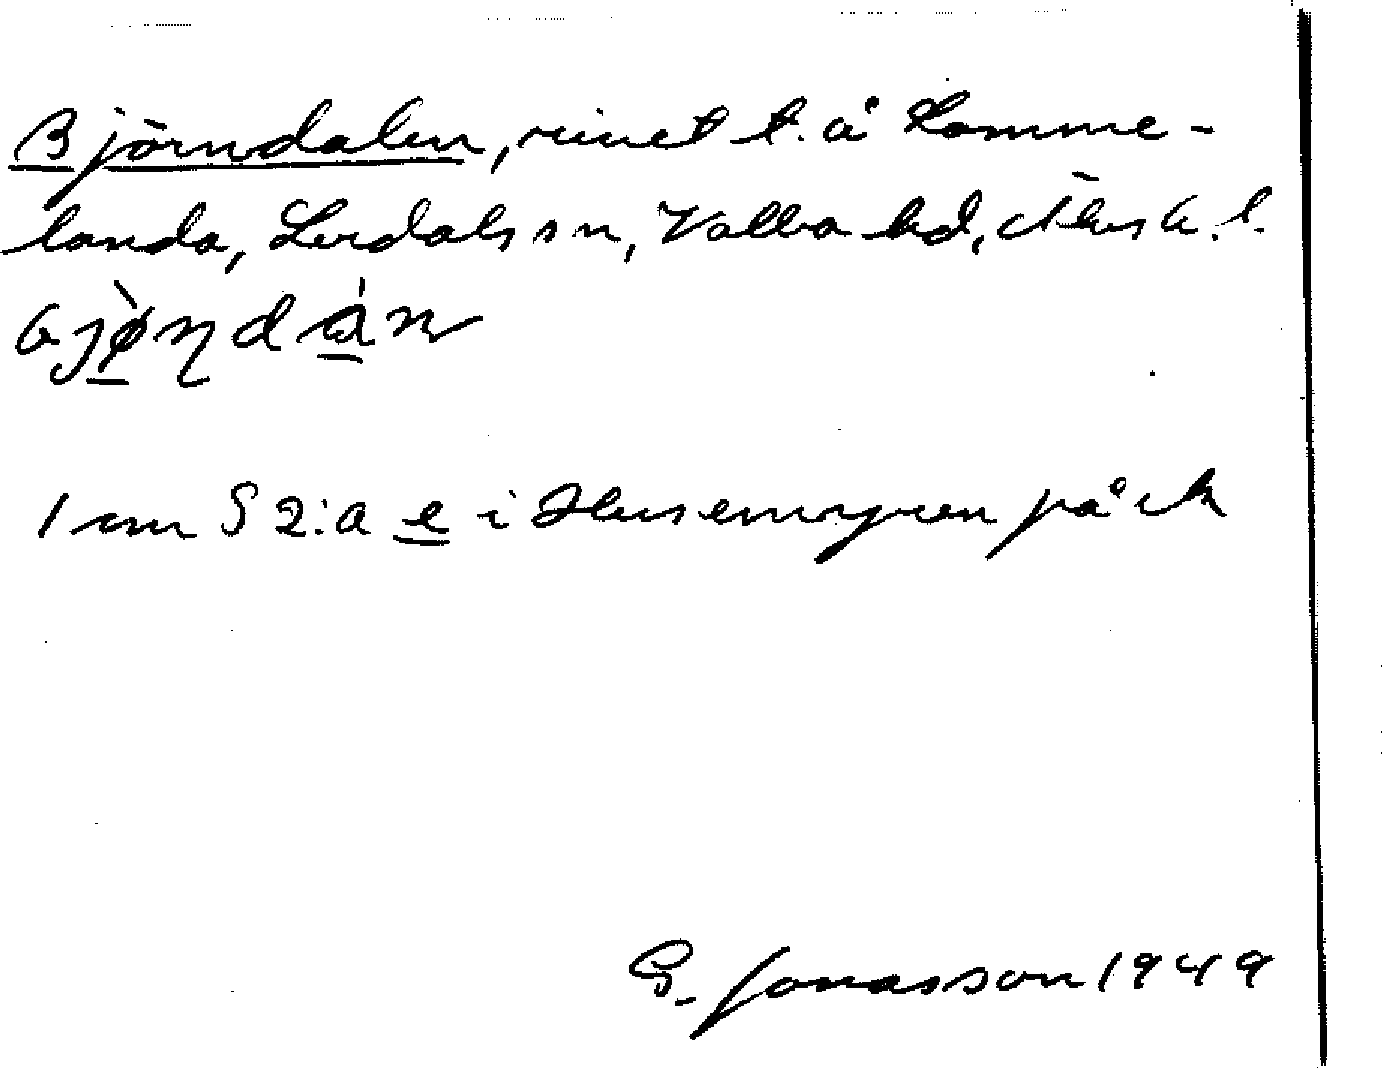 Björndalen, rivet t. å Lomme-
landa, Lerdals sn, Valbo hd, Älvsb. l.
bjö̀ɳdán
1 cm S 2:a e i Husemyren på ek
G. Jonasson 1949